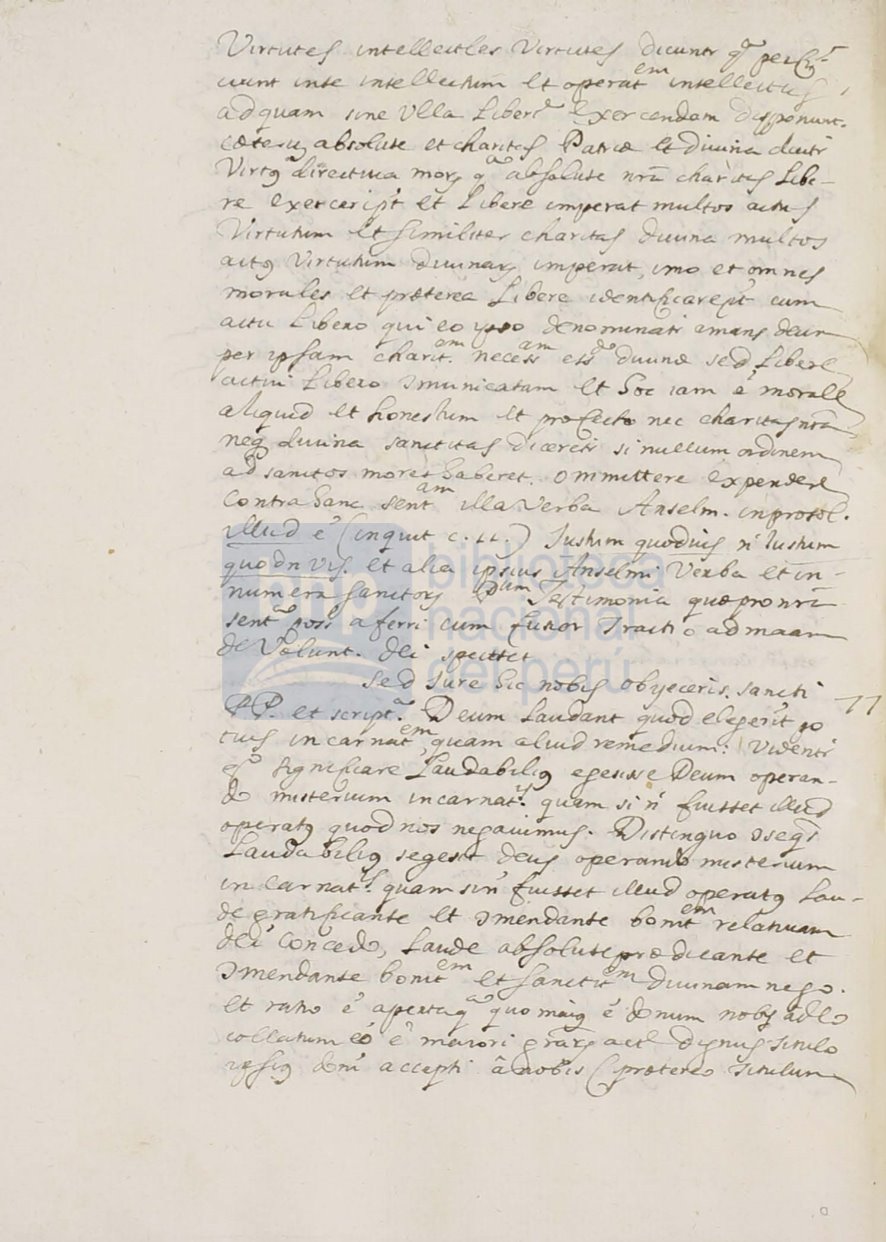 Virtutes intellectles Virtutes dicuntr qa perfici-
unt inse intellectum et operatem intellectus
ad quam sine Ulla Liberte Exercendam disponunt.
cæteru absolute et charitas Patriæ et divina dicitr
Virtꝰ directiva morꝝ qa absolute nrã charitas Libe-
re exerceript et Libere imperat multos actus
Virtutum et similiter charitas divina multos
actꝰ Virtutum divinarꝝ imperat, imo et omnes
morales et præterea Libere identificarepit cum
actu Libero qui eo ipso denominatr amans deum
per ipsam charitem. necessam divinæ sed Libere
actui Libero ɔmunicatam et hoc iam ē morale
aliquid et honestum et profecto nec charitas nrã
neq divina sanctitas diceretr si nullum ordinem
ad sanctos mores haberet. Ommittere expendere
Contra hanc sentam illa Verba Anselm. in prosol.
illud ē (inquit c. 11.) Justum quod vis nˉ Justum
quod nˉ vis. et alia ipsius Anselmi Verba et in-
numera sanctorꝝ Pum Testimonia quæ pro nrã
senta poss aferri cum fusior Tractio ad maam
de Volunt. Dei spectet
sed Jure hic nobis obyeceris. sancti 77
PP. et script.a Deum Laudant quod elegerit po
tius incarnatem, quam aliud remedium: Videntr
qo significare Laudabiliꝰ egesisse Deum operan-
do misterium incarnatis. quam si nˉ fuisset illud
operatꝰ quod nos negavimus. Distinguo ɔseqs
Laudabiliꝰ segesit deus operando misterium
incarnatis. quam si nˉ fuisset illud operatꝰ Lau-
de gratificante et ɔmendante bonitem relativam
dei Concedo, Laude absolute prædicante et
ɔmendante bonitem et sanctitem divinam nego.
et ratio ē aperta qa quo maiꝰ ē donum nobis à deo
collatum eo ē maiori grarꝝ acte dignus titulo
ipsiꝰ doni accepti â nobis (prætereo titulum